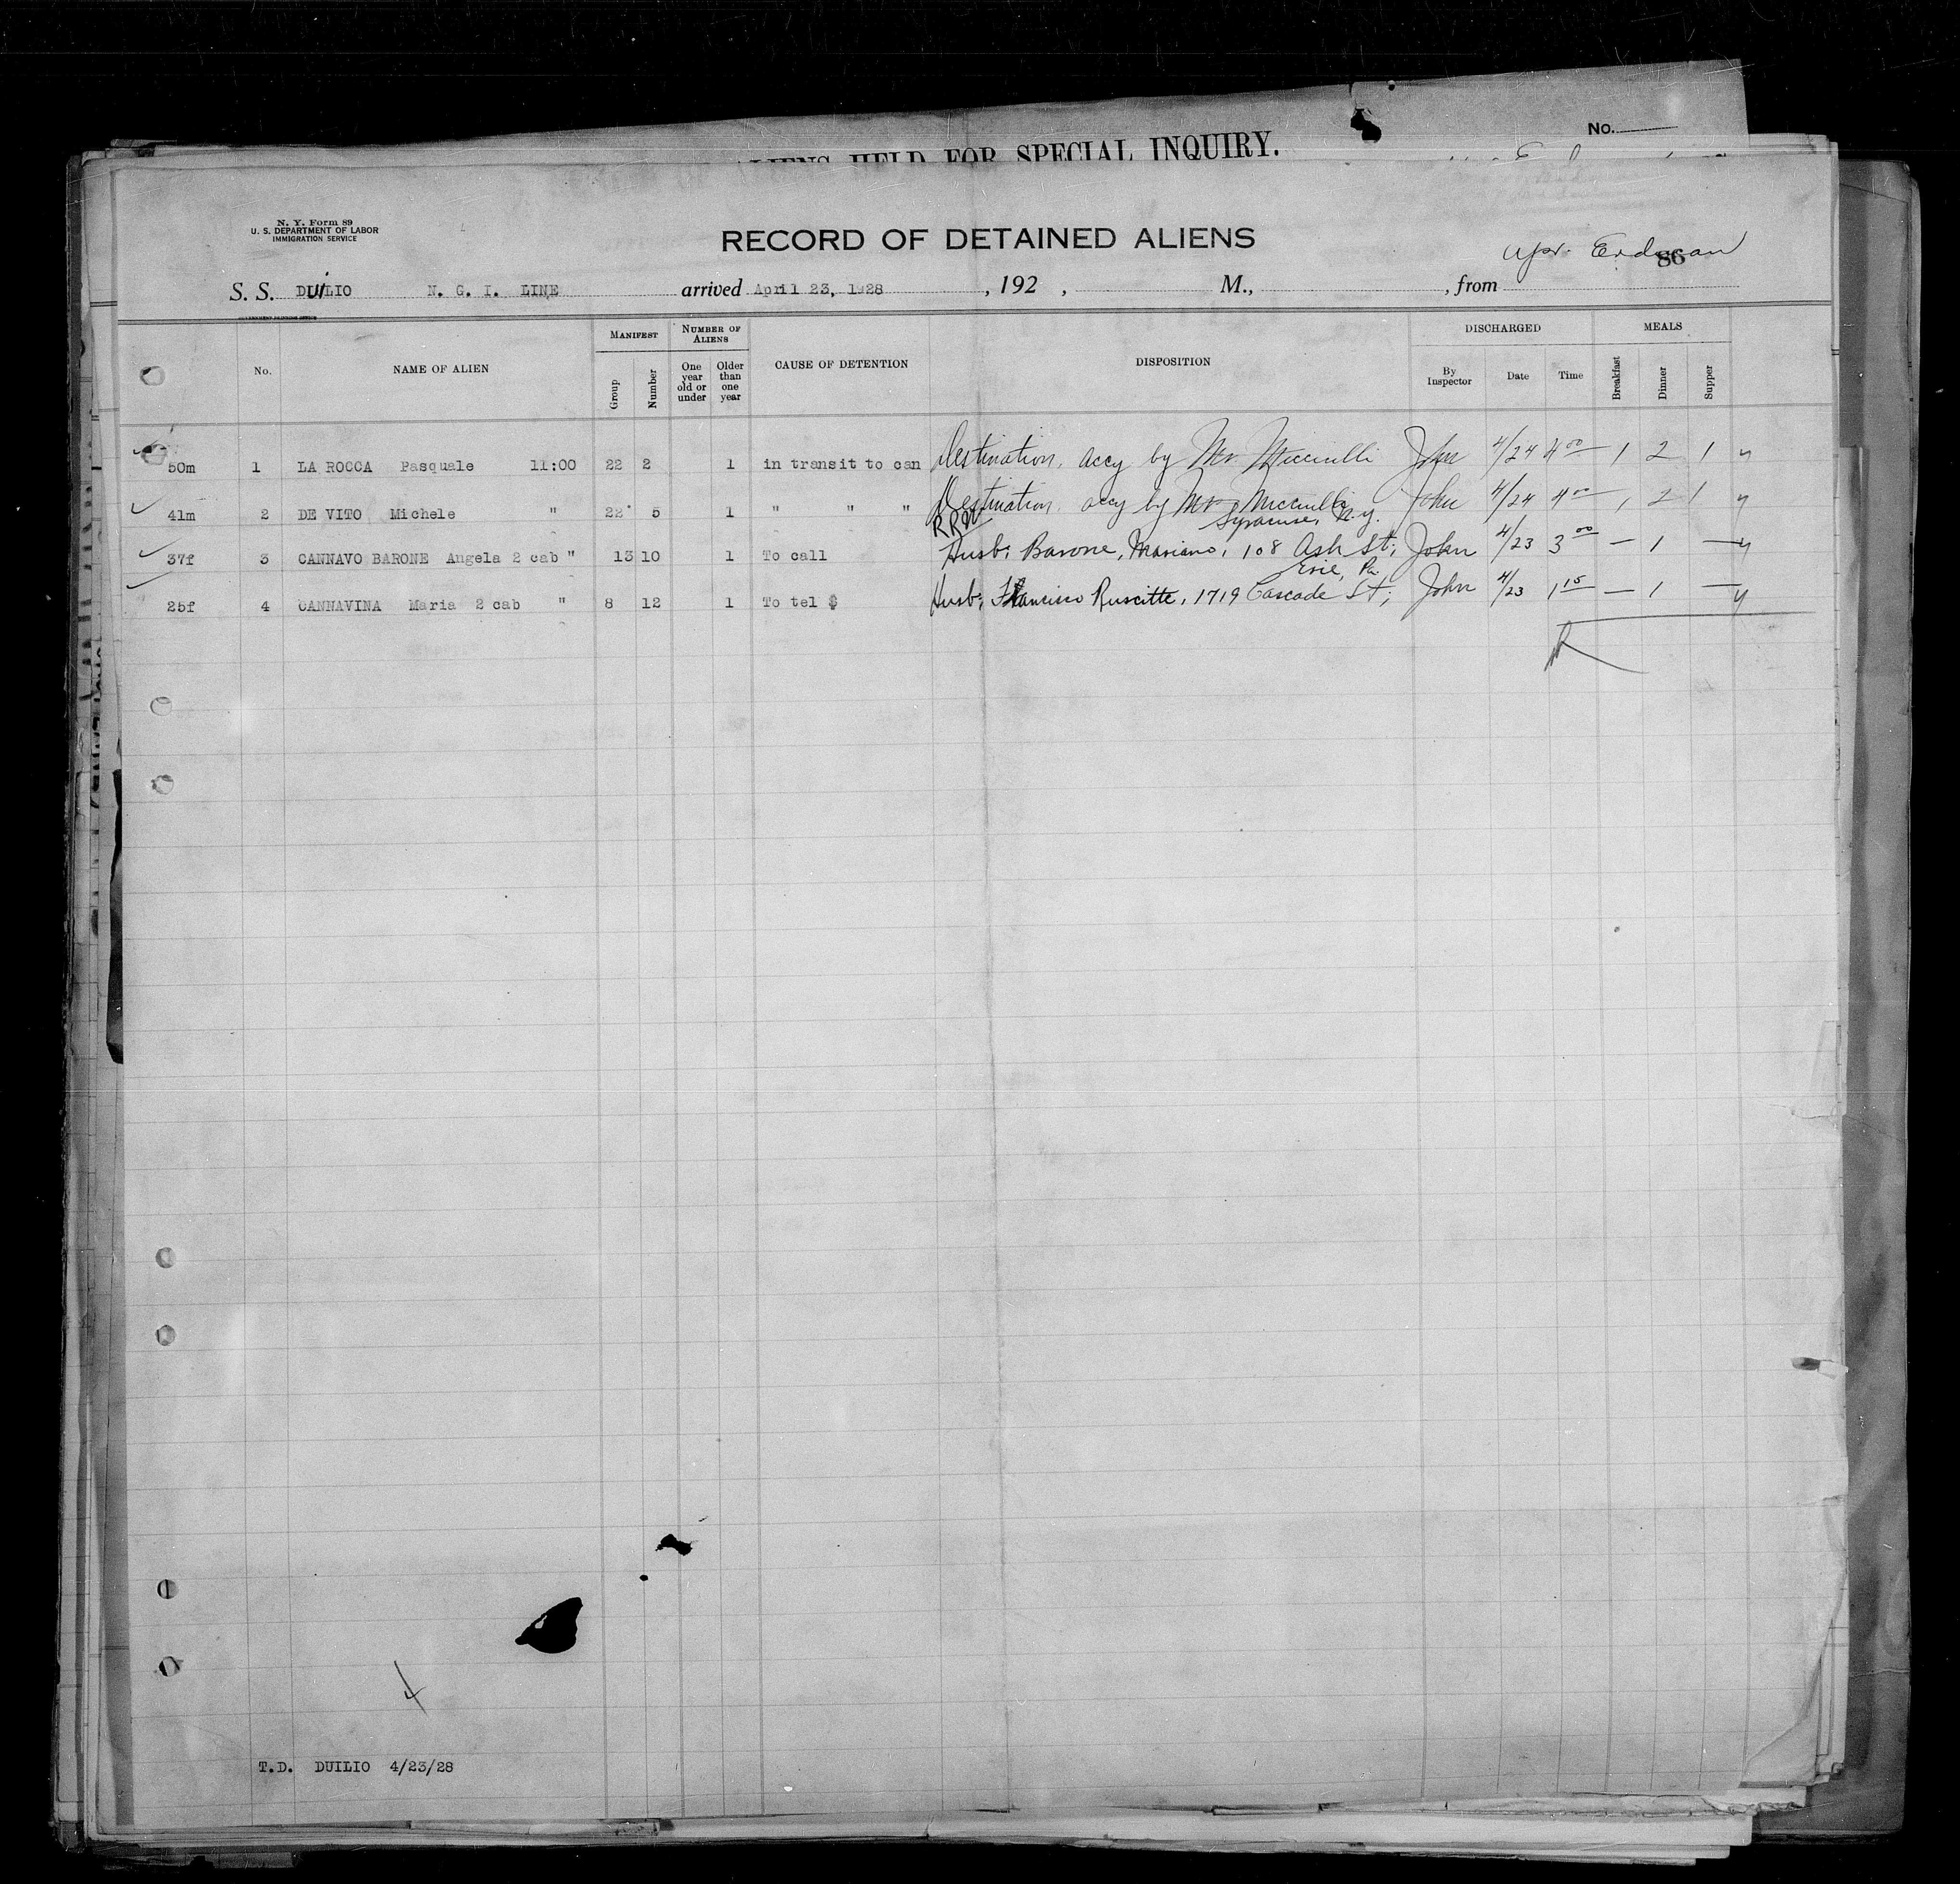 ALIENS HELD FOR SPECIAL INQUIRY.
No.
N. Y. Form 89
U. S. DEPARTMENT OF LABOR
IMMIGRATION SERVICE
RECORD OF DETAINED ALIENS
86
S. S. DUILIO N. G. I. LINE arrived April 23, 1928, 192 , M., , from
GOVERNMENT PRINTING OFFICE
No. NAME OF ALIEN MANIFEST Group Number NUMBER OF ALIENS One year old or under Older than one year CAUSE OF DETENTION DISPOSITION DISCHARGED By Inspector Date Time MEALS Breakfast Dinner Supper
50m 1 LA ROCCA Pasquale 11:00 22 2 1 in transit to can Destination, accy by Mr. John 4/24 4 00 1 2 1 y
41m 2 DE VITO Michele " 22 5 1 " " " Destination, accy by Mr. John 4/24 4 00 1 2 1 y
RRW Syracuse, N.Y.
37f 3 CANNAVO BARONE Angela 2 cab " 13 10 1 To call Husb; Barone, Mariano, 108 Ash St; John 4/23 3 00 — 1 — y
Erie, Pa.
25f 4 CANNAVINA Maria 2 cab " 8 12 1 To tel $ Husb; Francisco Ruscitte, 1719 Cascade St; John 4/23 1 15 — 1 — y
4
T.D. DUILIO 4/23/28